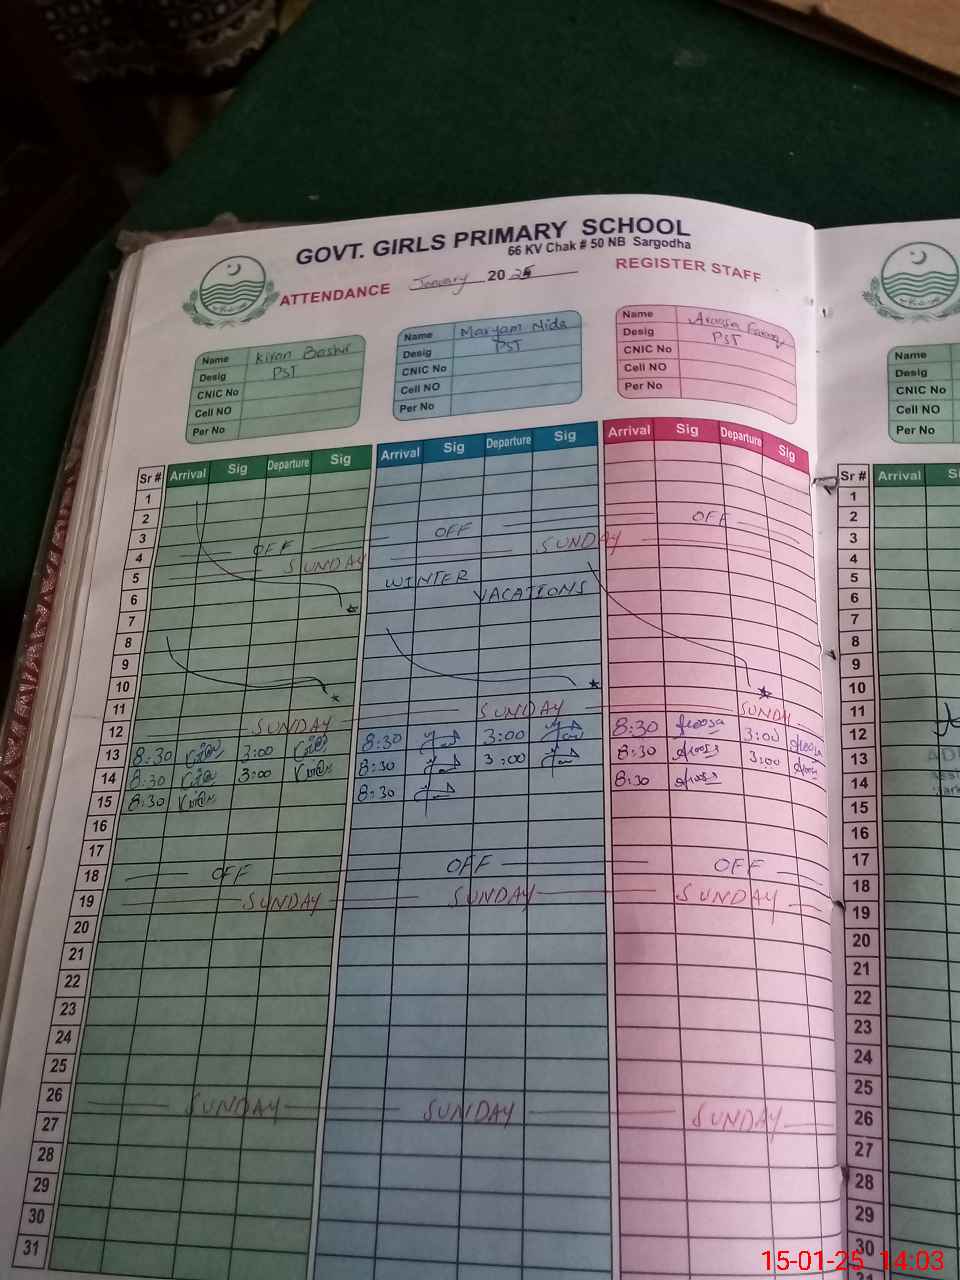 GOVT. GIRLS PRIMARY SCHOOL
66 KV Chak # 50 NB Sargodha
ATTENDANCE January 2025 REGISTER STAFF
Name Kiran Bashir
Desig PST
CNIC No
Cell NO
Per No
Name Maryam Nida
Desig PST
CNIC No
Cell NO
Per No
Name Aroosa Farooq
Desig PST
CNIC No
Cell NO
Per No
Name
Desig
CNIC No
Cell NO
Per No
Sr # Arrival Sig Departure Sig Arrival Sig Departure Sig Arrival Sig Departure Sig Sr # Arrival
1 1
2 2
3 OFF OFF OFF 3
4 4
5 SUNDAY SUNDAY 5
WINTER
6 VACATIONS 6
7 7
8 8
9 9
10 10
11 11
12 SUNDAY SUNDAY SUNDAY 12
13 8:30 3:00 8:30 3:00 8:30 Aroosa 3:00 Aroosa 13
14 8:30 3:00 8:30 3:00 8:30 Aroosa 3:00 Aroosa 14
15 8:30 8:30 8:30 Aroosa 15
16 16
17 17
18 OFF OFF OFF 18
19 SUNDAY SUNDAY SUNDAY 19
20 20
21 21
22 22
23 23
24 24
25 25
26 SUNDAY SUNDAY SUNDAY 26
27 27
28 28
29 29
30 30
31
15-01-25 14:03